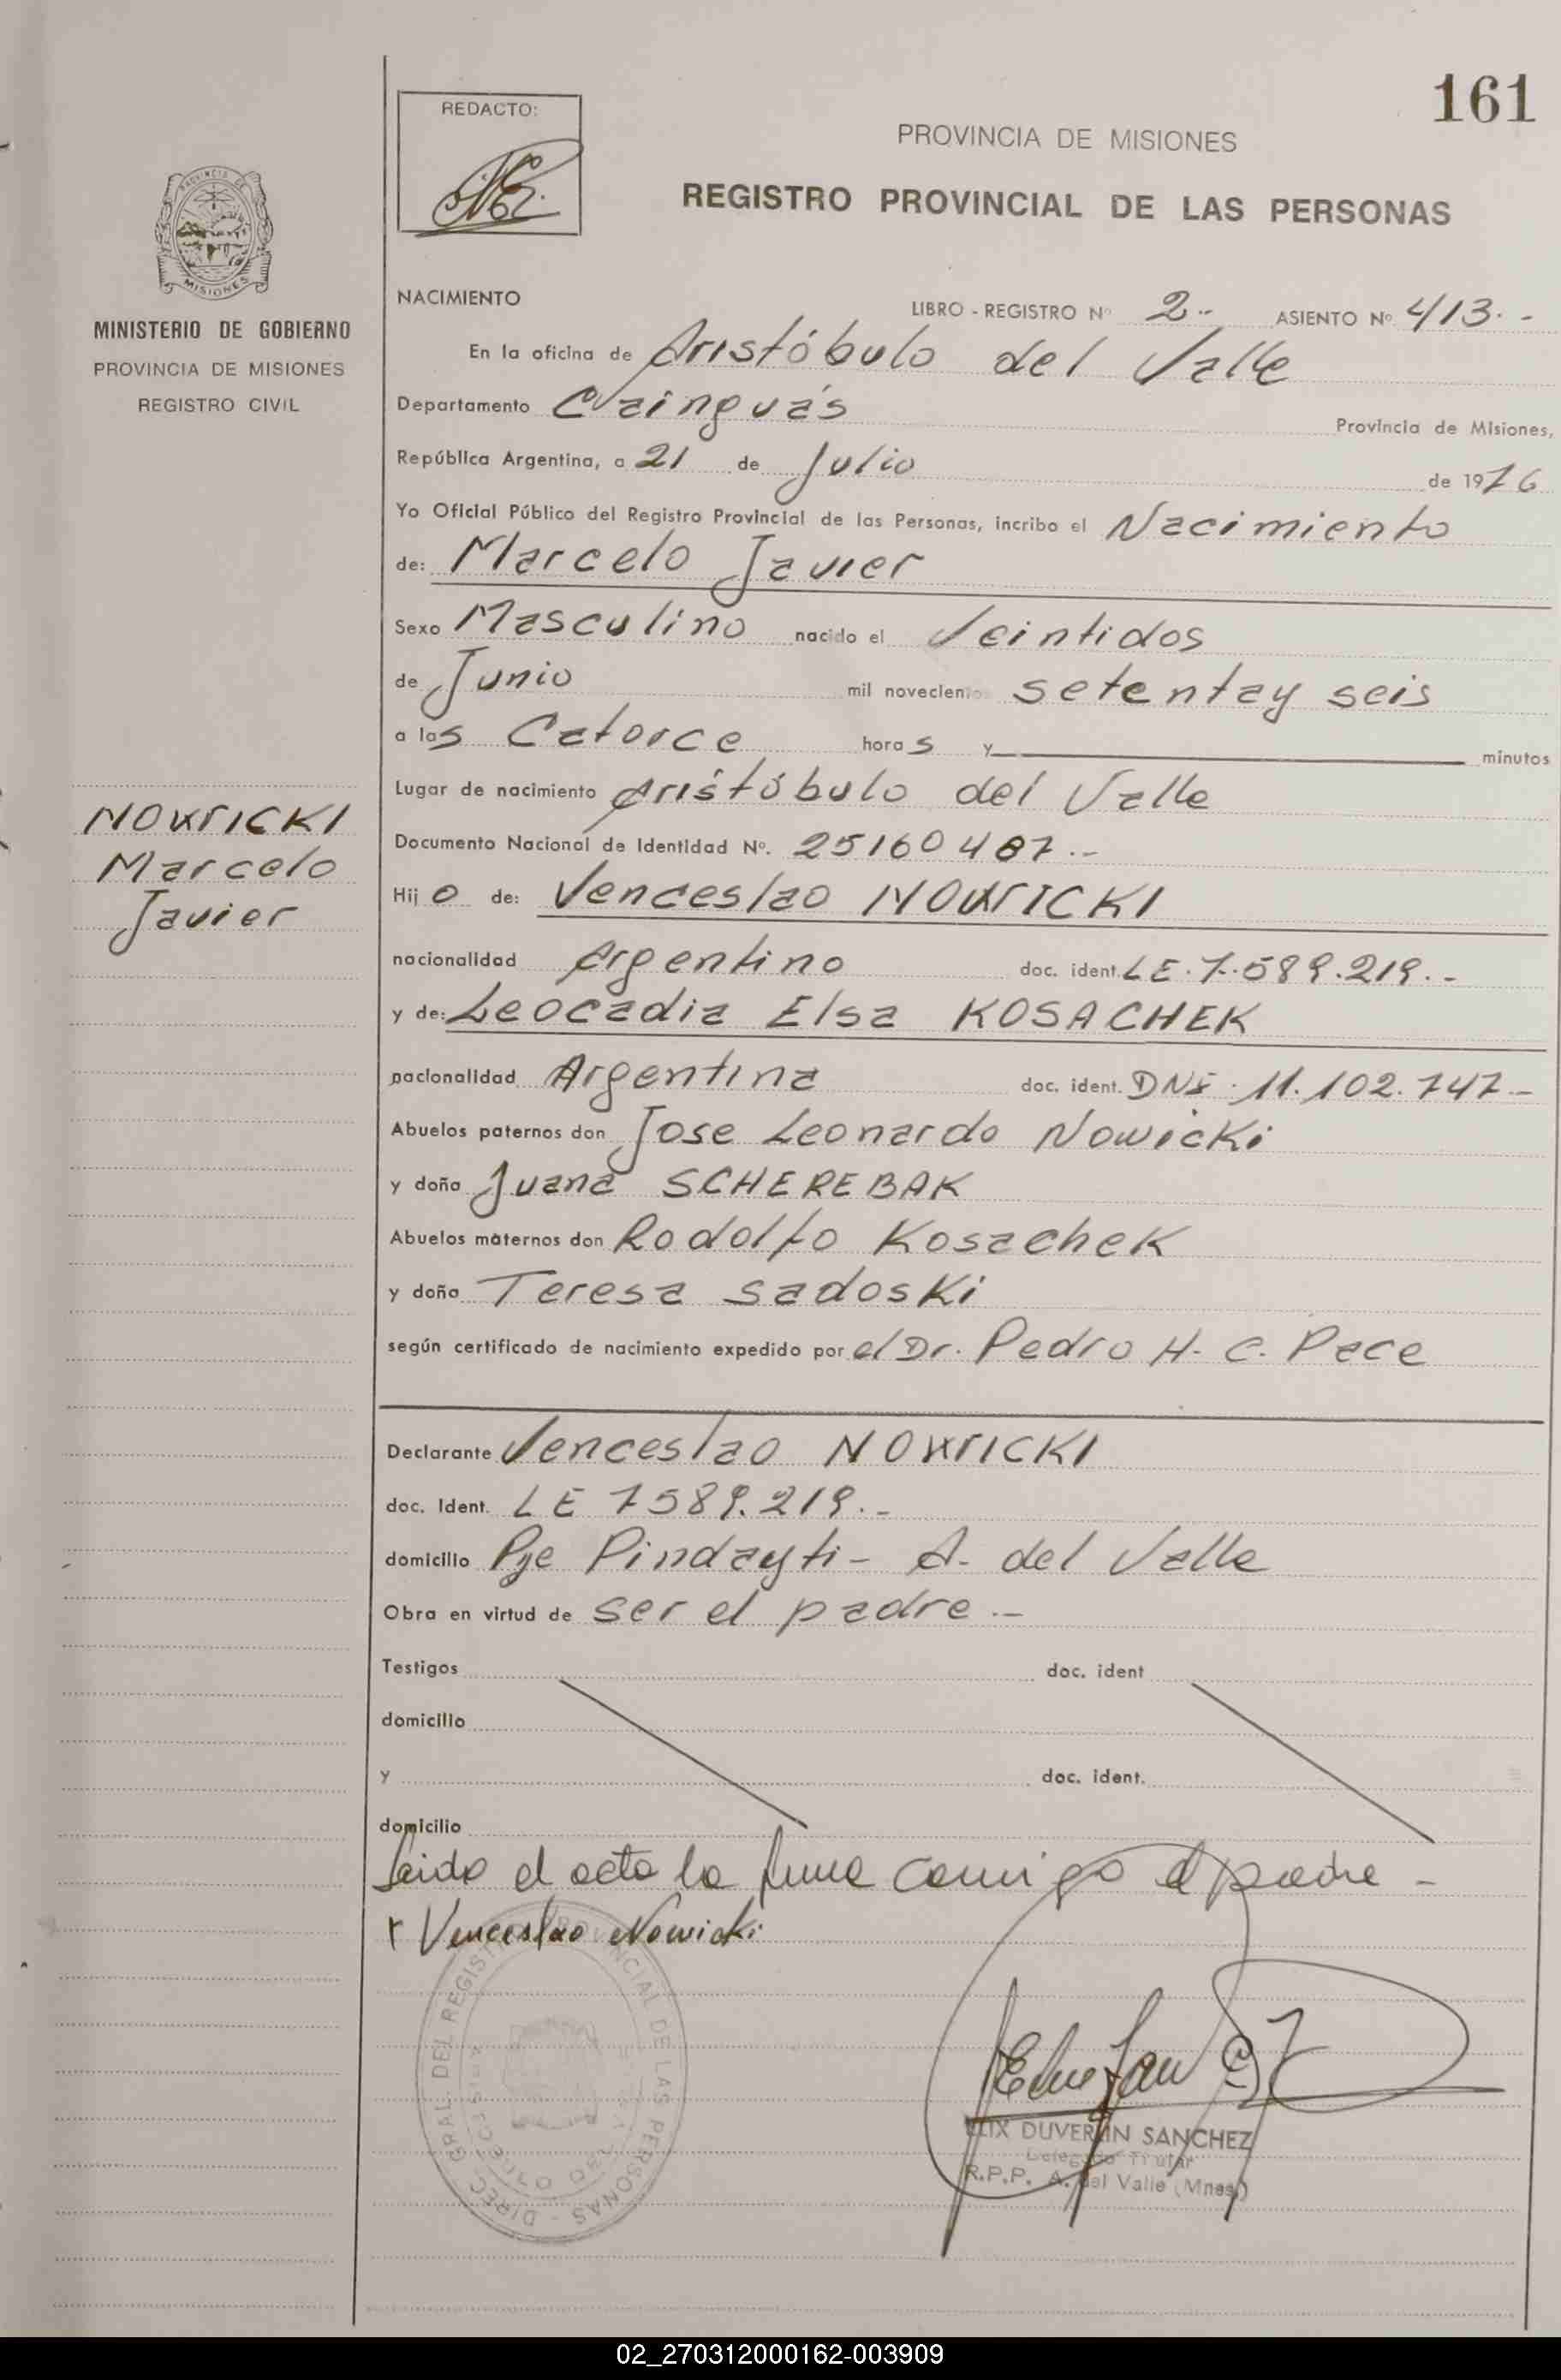 161
REDACTO:
PROVINCIA DE MISIONES
REGISTRO PROVINCIAL DE LAS PERSONAS
MISIONES
MINISTERIO DE GOBIERNO
PROVINCIA DE MISIONES
REGISTRO CIVIL
NACIMIENTO LIBRO - REGISTRO Nº 2-- ASIENTO Nº 413.-
En la oficina de Aristóbulo del Valle
Departamento Cainguás Provincia de Misiones,
República Argentina, a 21 de Julio de 1976
Yo Oficial Público del Registro Provincial de las Personas, incribo el Nacimiento
de: Marcelo Javier
Sexo Masculino nacido el Veintidos
de Junio mil novecientos setentay seis
a las Catorce horas y minutos
Lugar de nacimiento Aristóbulo del Valle
Documento Nacional de Identidad Nº. 25160487.--
NOWICKI
Marcelo
Javier
Hijo de: Venceslao NOWICKI
nacionalidad Argentino doc. ident. LE.7.589.219.--
y de: Leocadia Elsa KOSACHEK
nacionalidad Argentina doc. ident. DNI. 11.102.747--
Abuelos paternos don Jose Leonardo Nowicki
y doña Juana SCHEREBAK
Abuelos maternos don Rodolfo Kosachek
y doña Teresa Sadoski
según certificado de nacimiento expedido por el Dr. Pedro H. C. Pace
Declarante Venceslao NOWICKI
doc. Ident. LE 7589.219.--
domicilio Pje Pindayti- A. del Valle
Obra en virtud de ser el padre.--
Testigos doc. ident
domicilio
y doc. ident.
domicilio
Leido el acta la firma conmigo el padre -
x Venceslao Nowicki
DIREC. GRAL. DEL REGISTRO PROVINCIAL DE LAS PERSONAS -
DUVERLIN SANCHEZ
Delegado Titular
R.P.P. A. del Valle (Mnes.)
02_270312000162-003909